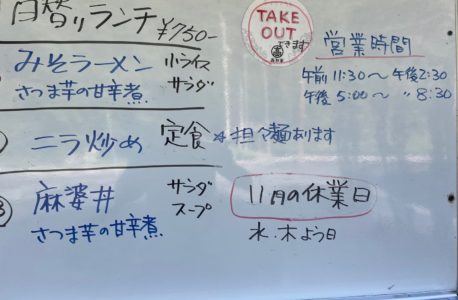 日替りランチ ¥750-
みそラーメン 小ライス
さつま芋の甘辛煮 サラダ
ニラ炒め 定食 ※担々麺あります
③ 麻婆丼 サラダ
さつま芋の甘辛煮 スープ
TAKE
OUT
できます
営業時間
午前 11:30〜午後2:30
午後 5:00〜 〃 8:30
11月の休業日
水・木よう日